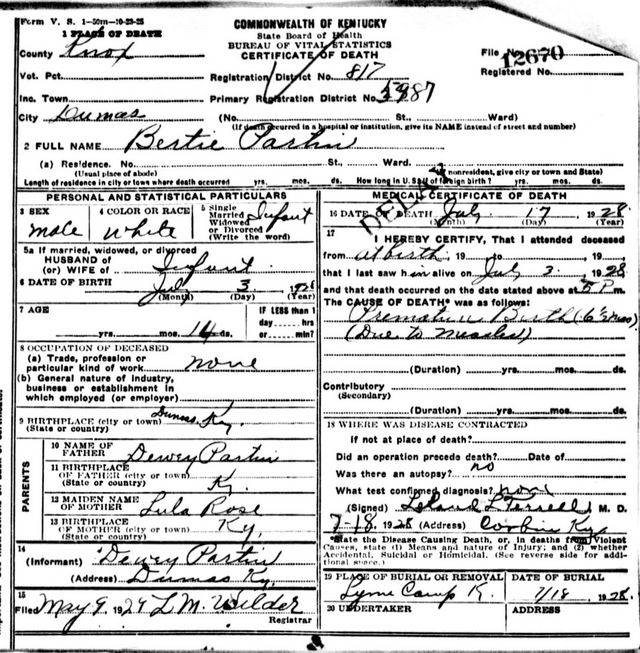 Form V. S. 1-50m-10-23-25
COMMONWEALTH OF KENTUCKY
State Board of Health
BUREAU OF VITAL STATISTICS
CERTIFICATE OF DEATH
1 PLACE OF DEATH
County Knox
File No. 12670
Registered No.
Vot. Pct.
Registration District No. 817
Inc. Town
Primary Registration District No. 5987
City Dumas (No. St., Ward)
(If death occurred in a hospital or institution, give its NAME instead of street and number)
2 FULL NAME Bertie Partin
(a) Residence. No. St., Ward.
(Usual place of abode) (If nonresident, give city or town and State)
Length of residence in city or town where death occurred yrs. mos. ds. How long in U. S., if of foreign birth? yrs. mos. ds.
PERSONAL AND STATISTICAL PARTICULARS
3 SEX male
4 COLOR OR RACE white
5 Single Married Widowed or Divorced (Write the word) Infant
5a If married, widowed, or divorced
HUSBAND of
(or) WIFE of Infant
6 DATE OF BIRTH July 3 1928
(Month) (Day) (Year)
7 AGE yrs. mos. 14 ds.
IF LESS than 1 day hrs. or min?
8 OCCUPATION OF DECEASED
(a) Trade, profession or
particular kind of work none
(b) General nature of Industry,
business or establishment in
which employed (or employer)
9 BIRTHPLACE (city or town) Dumas, Ky.
(State or country)
PARENTS
10 NAME OF FATHER Dewey Partin
11 BIRTHPLACE OF FATHER (city or town)
(State or country) Ky.
12 MAIDEN NAME OF MOTHER Lula Rose
13 BIRTHPLACE OF MOTHER (city or town) Ky.
(State or country)
14
(Informant) Dewey Partin
(Address) Dumas Ky.
15
Filed May 9, 1929 L. M. Wilder
Registrar
MEDICAL CERTIFICATE OF DEATH
DELAYED
16 DATE OF DEATH July 17 1928
(Month) (Day) (Year)
17
I HEREBY CERTIFY, That I attended deceased
from at birth, 19 to , 19
that I last saw him alive on July 3, 1928
and that death occurred on the date stated above at P m.
The CAUSE OF DEATH* was as follows:
Premature Birth (6½ mos)
(Due to Measles)
(Duration) yrs. mos. ds.
Contributory
(Secondary)
(Duration) yrs. mos. ds.
18 WHERE WAS DISEASE CONTRACTED
If not at place of death?
Did an operation precede death? Date of
Was there an autopsy? no
What test confirmed diagnosis? none
(Signed) Leland L Terrell M. D.
7-18, 1928 (Address) Corbin Ky
*State the Disease Causing Death, or, in deaths from Violent
Causes, state (1) Means and nature of Injury; and (2) whether
Accidental, Suicidal or Homicidal. (See reverse side for addi-
tional space.)
19 PLACE OF BURIAL OR REMOVAL
Lynn Camp K.
DATE OF BURIAL
7/18 1928.
20 UNDERTAKER
ADDRESS